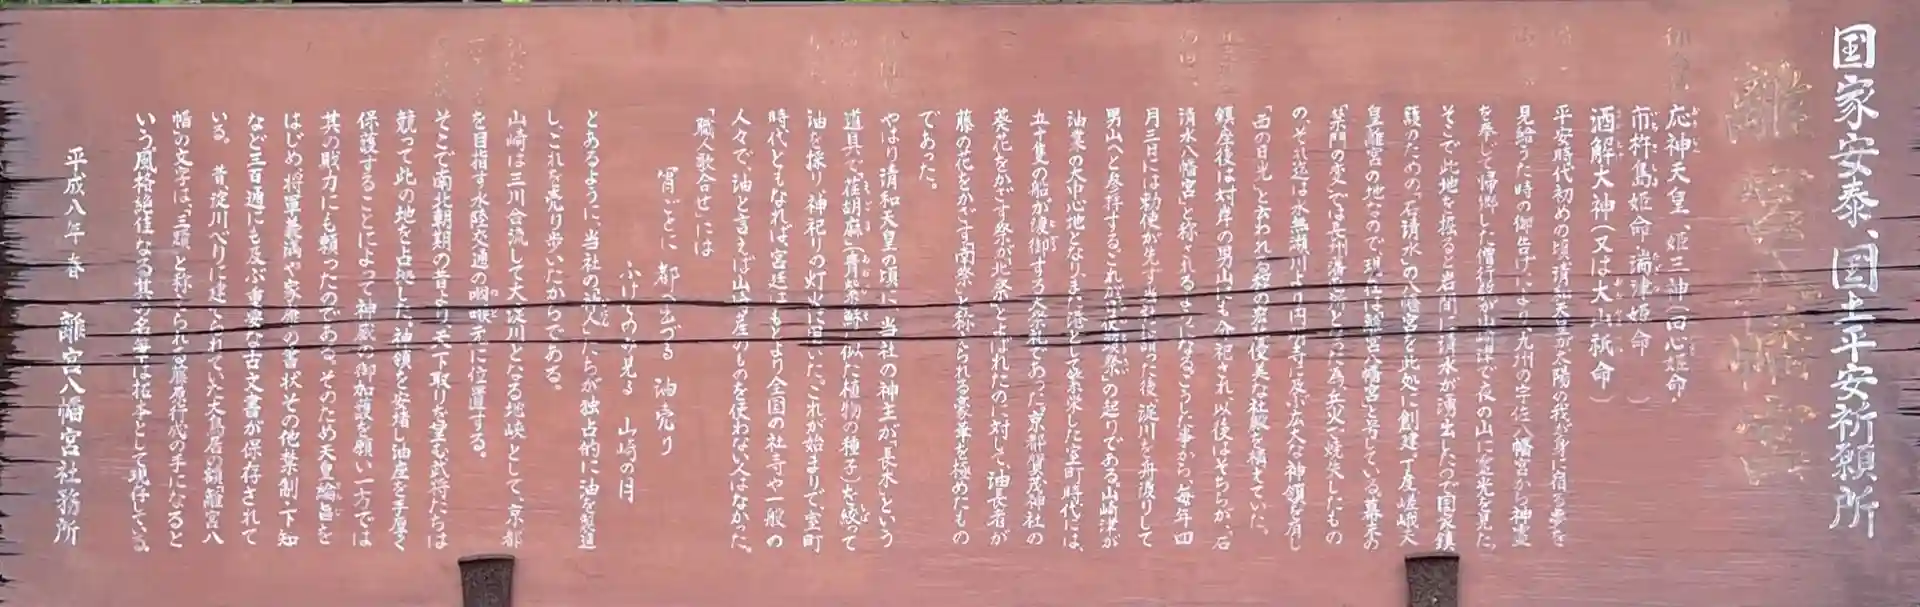 国家安泰、国土平安祈願所
離宮八幡宮
応神天皇、姫三神(田心姫命、
市杵島姫命、湍津姫命 )
酒解大神(又は大山祇命)
平安時代初めの頃、清和天皇が太陽の我が身に宿る夢を
見給うた時の御告げにより、九州の宇佐八幡宮から神霊
を奉じて帰郷した僧行教が山崎津で夜の山に霊光を見た。
そこで此地を掘ると岩間に清水が湧き出したので国家鎮
護のための「石清水」の八幡宮を此処に創建。丁度嵯峨天
皇離宮の地なので現在は離宮八幡宮と号している。幕末の
「禁門の変」では長州藩が屯所となった為兵火で焼失したもの
の、それ迄は水無瀬川より円明寺に及ぶ広大な神領を有し
「西の日光」と云われる程の壮大優美な社殿を構えていた。
鎮座後は対岸の男山にも分祀され、以後はそちらが、「石
清水八幡宮」と称されるようになる。こうした事から、毎年四
月三日には勅使が先ず当社に詣った後、淀川を舟渡りして
男山へと参拝する。これが「日使頭祭」の起りである。山崎津が
油業の大中心地となり、また港として栄栄した室町時代には、
五十隻の船が渡御する大祭礼であった。京都賀茂神社の
葵花をかざす祭が北祭とよばれたのに対して、油長者が
藤の花をかざす南祭と称えられる豪華を極めたもの
であった。
やはり清和天皇の頃に、当社の神主が「長木」という
道具で「荏胡麻」(青紫蘇に似た植物の種子)を絞って
油を採り、神祀りの灯火に用いた。これが始まりで室町
時代ともなれば宮廷はもとより全国の社寺や一般の
人々で、油と言えば山崎産のものを使わない人はなかった。
「職人歌合せ」には
宵ごとに 都へ出づる 油売り
ふけてのみ見る 山崎の月
とあるように、当社の「神人」たちが独占的に油を製造
し、これを売り歩いたからである。
山崎は三川合流して大淀川となる地峡として、京都
を目指す水陸交通の咽喉元に位置する。
そこで南北朝期の昔より、天下取りを望む武将たちは
競って此の地を占拠した。神領を安堵し油座を手厚く
保護することによって神威の御加護を願い、一方では
其の財力にも頼ったのである。そのため天皇綸旨を
はじめ将軍義満や家康の書状その他禁制・下知
など三百通にも及ぶ重要な古文書が保存されて
いる。 昔、淀川べりに建てられていた大鳥居の額「離宮八
幡」の文字は、「三蹟」と称えられる藤原行成の手になると
いう。風格絶佳なる其の名筆は拓本として現存している。
平成八年 春 離宮八幡宮社務所